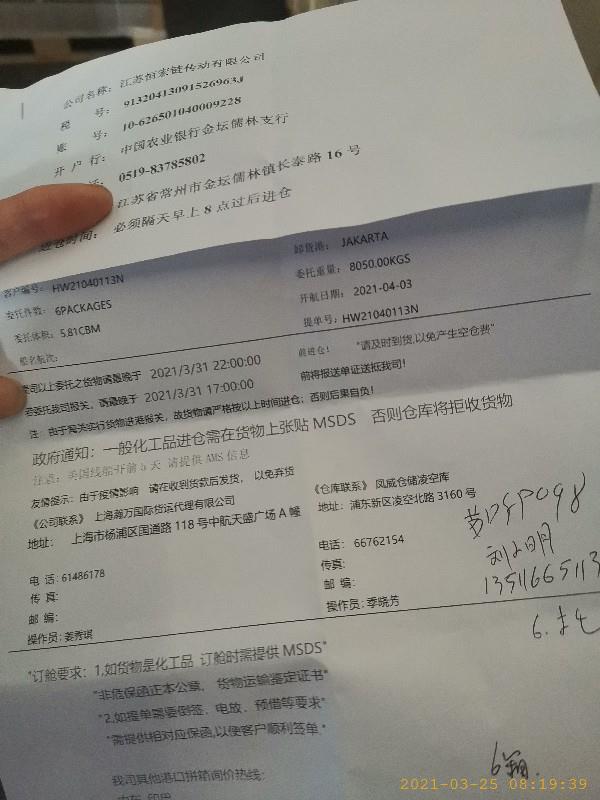 公司名称: 江苏恒宏链传动有限公司
税 号: 91320413091526963J
账 号: 10-626501040009228
开 户 行: 中国农业银行金坛儒林支行
0519-83785802
江苏省常州市金坛儒林镇长泰路 16 号
进仓时间: 必须隔天早上 8 点过后进仓
客户编号: HW21040113N
卸货港: JAKARTA
委托件数: 6PACKAGES
委托重量: 8050.00KGS
委托体积: 5.81CBM
开航日期: 2021-04-03
船名航次:
提单号: HW21040113N
司以上委托之货物请最晚于 2021/3/31 22:00:00 前进仓! "请及时到货,以免产生空仓费"
若委托我司报关, 请最晚于 2021/3/31 17:00:00 前将报送单证送抵我司!
注: 由于海关实行货物进港报关, 故货物请严格按以上时间进仓; 否则后果自负!
政府通知: 一般化工品进仓需在货物上张贴 MSDS 否则仓库将拒收货物
注意: 美国线船开前 5 天 请提供 AMS 信息
友情提示: 由于疫情影响 请在收到货款后发货, 以免弃货
《公司联系》 上海瀚万国际货运代理有限公司
地址: 上海市杨浦区国通路 118 号中航天盛广场 A 幢
电 话: 61486178
传 真:
邮 编:
操作员: 姜秀琪
《仓库联系》 凤威仓储凌空库
地址: 浦东新区凌空北路 3160 号
电话: 66762154
传真:
邮 编:
操作员: 季晓芳
13511665113
"订舱要求: 1,如货物是化工品 订舱时需提供 MSDS"
"非危保函正本公章, 货物运输鉴定证书"
"2,如提单需要倒签、电放、预借等要求"
"需提供相对应保函,以便客户顺利签单 "
我司其他港口拼箱询价热线:
2021-03-25 08:19:39